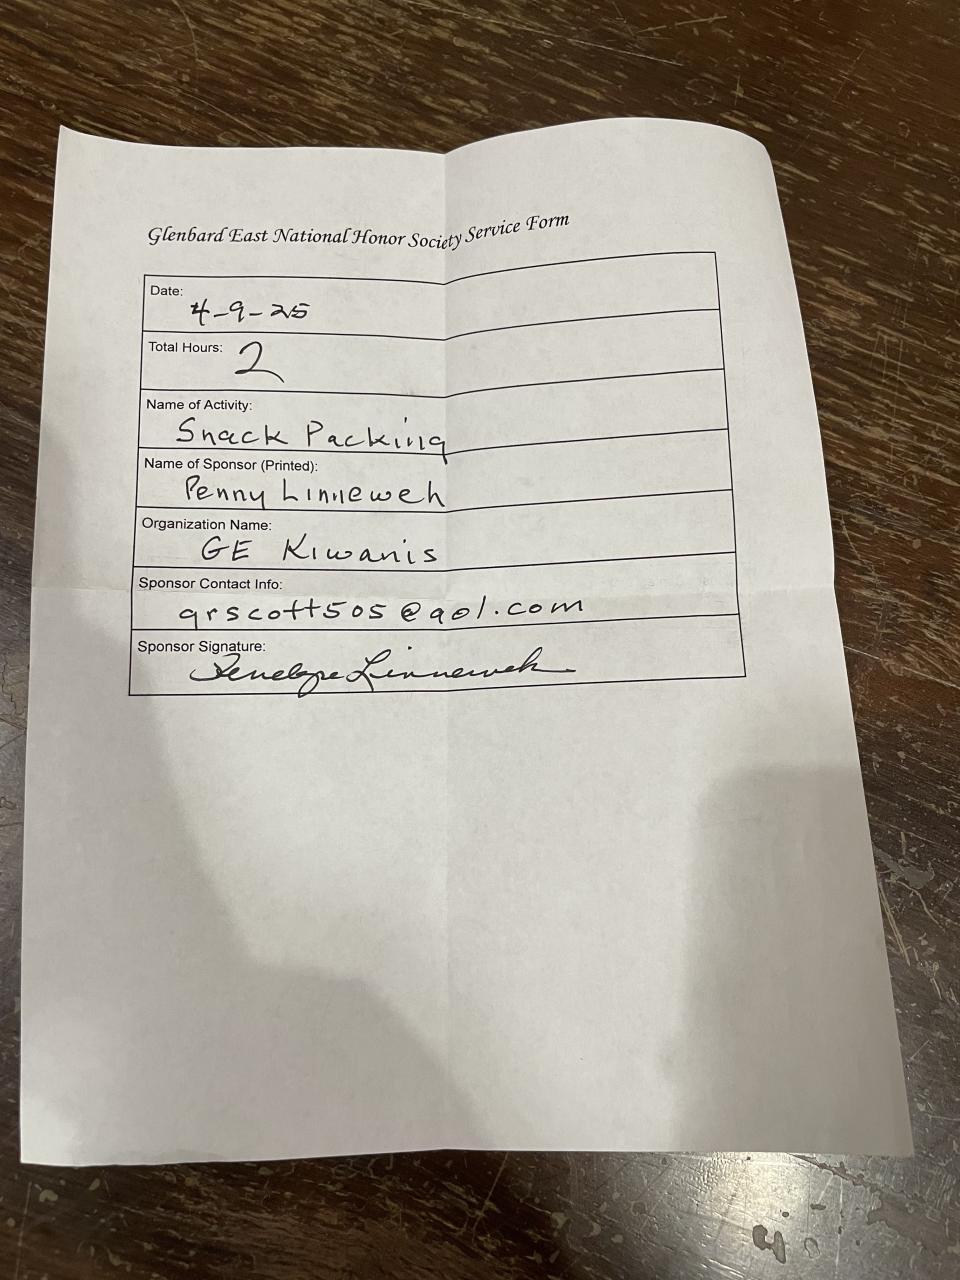 Glenbard East National Honor Society Service Form
Date:
4-9-25
Total Hours:
2
Name of Activity:
Snack Packing
Name of Sponsor (Printed):
Penny Linneweh
Organization Name:
GE Kiwanis
Sponsor Contact Info:
grscott505@aol.com
Sponsor Signature:
Penelope Linneweh